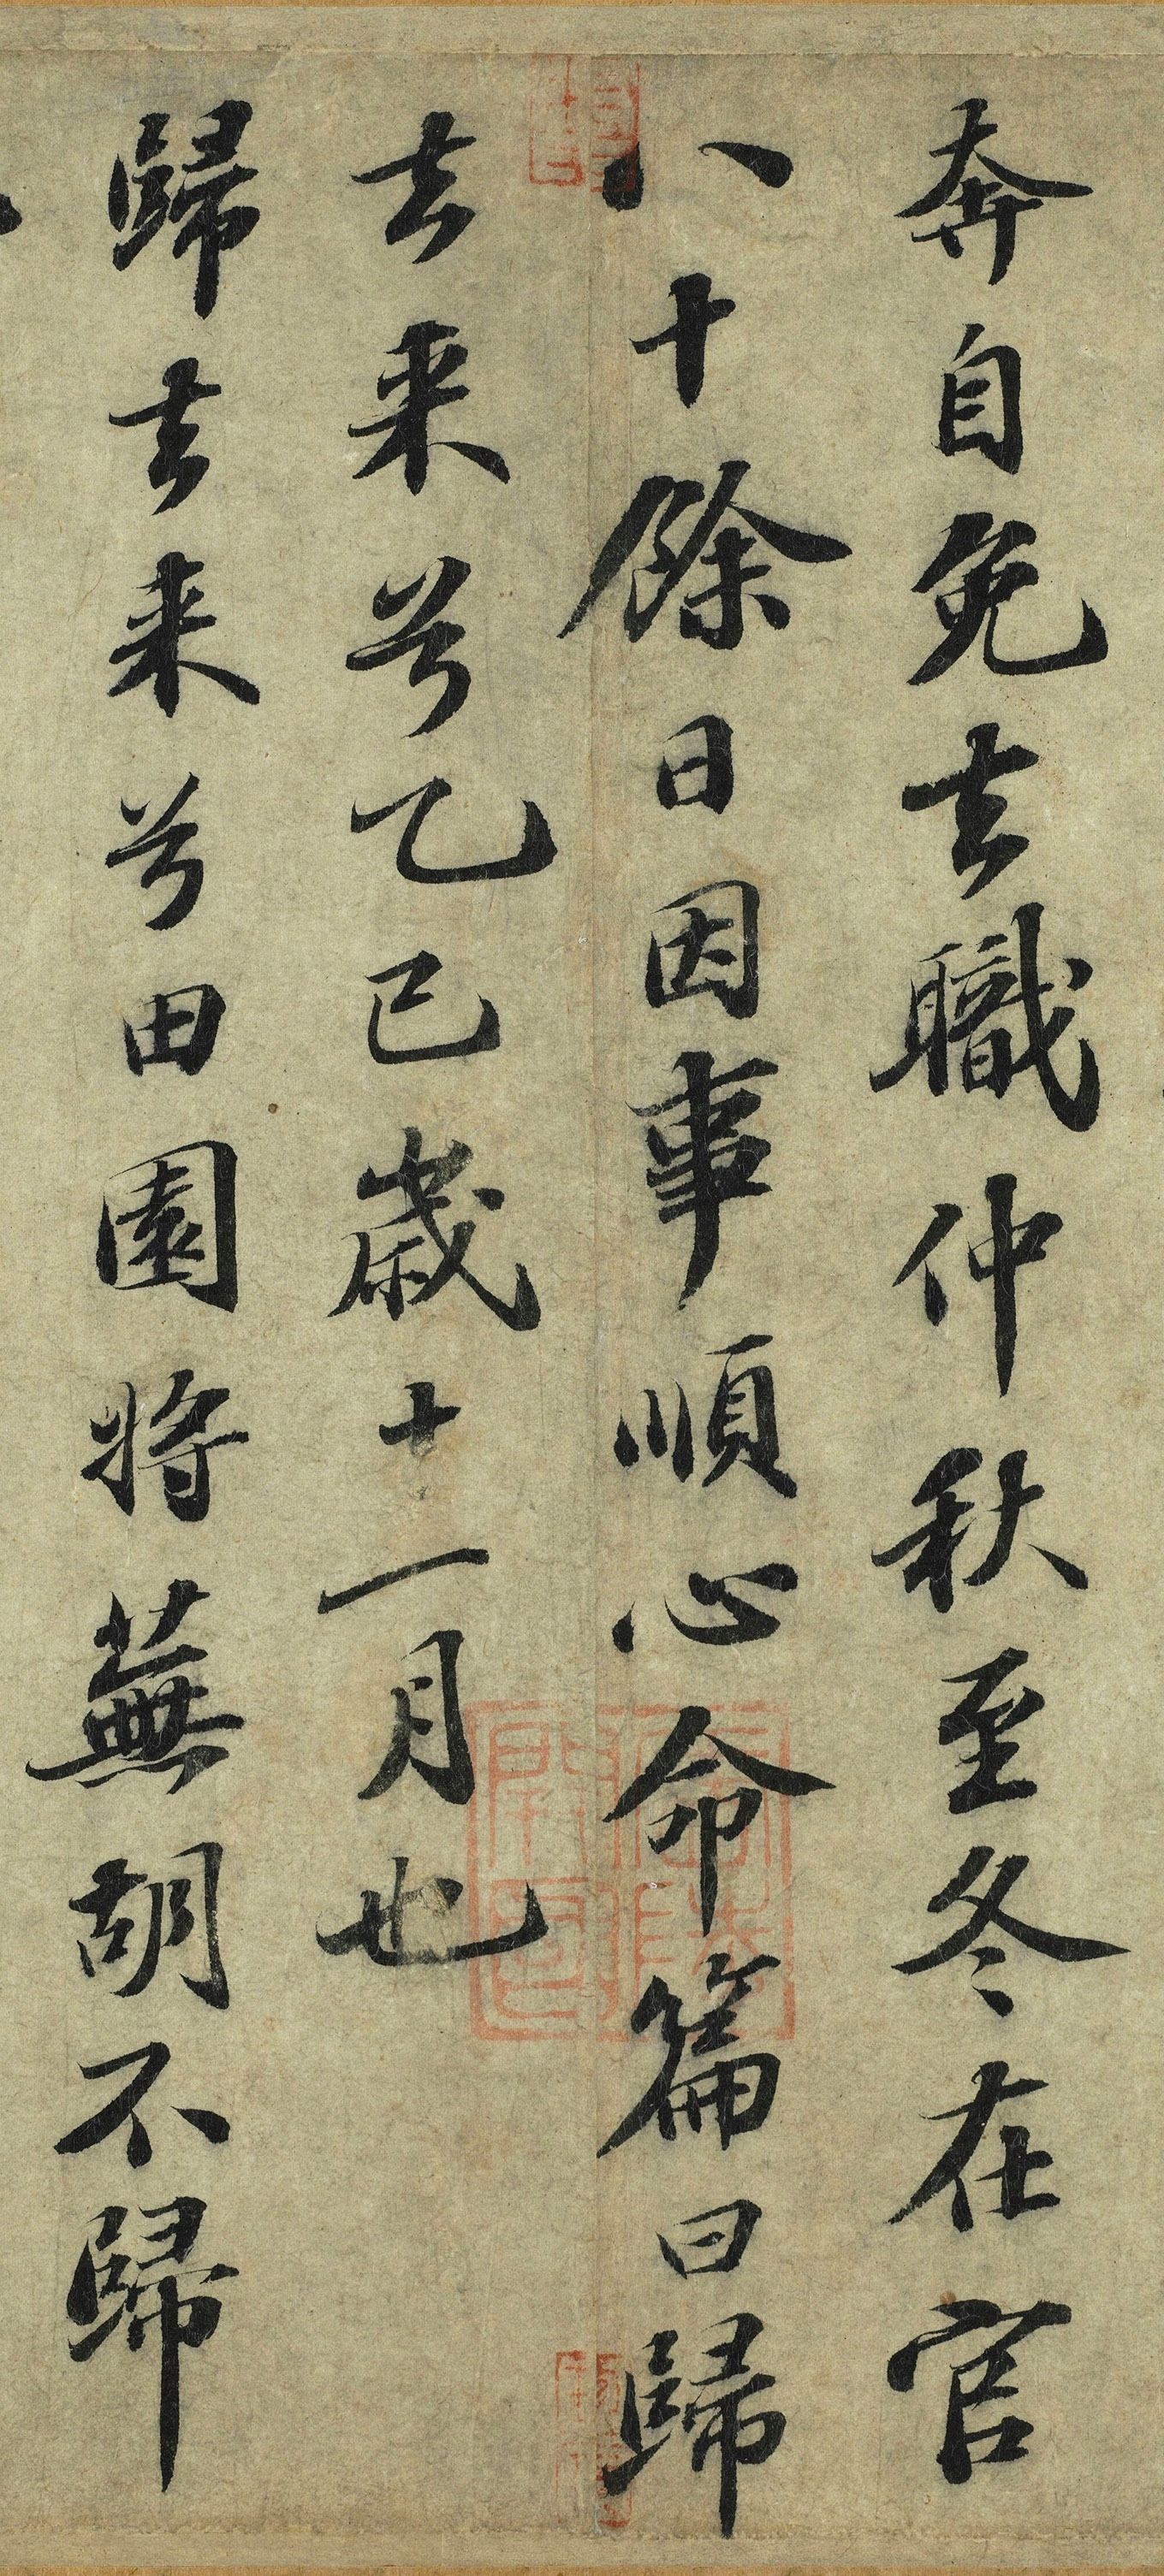 奔自免去職仲秋至冬在官
八十餘日因事順心命篇曰歸
去来兮乙巳歳十一月也
歸去来兮田園将蕪胡不歸